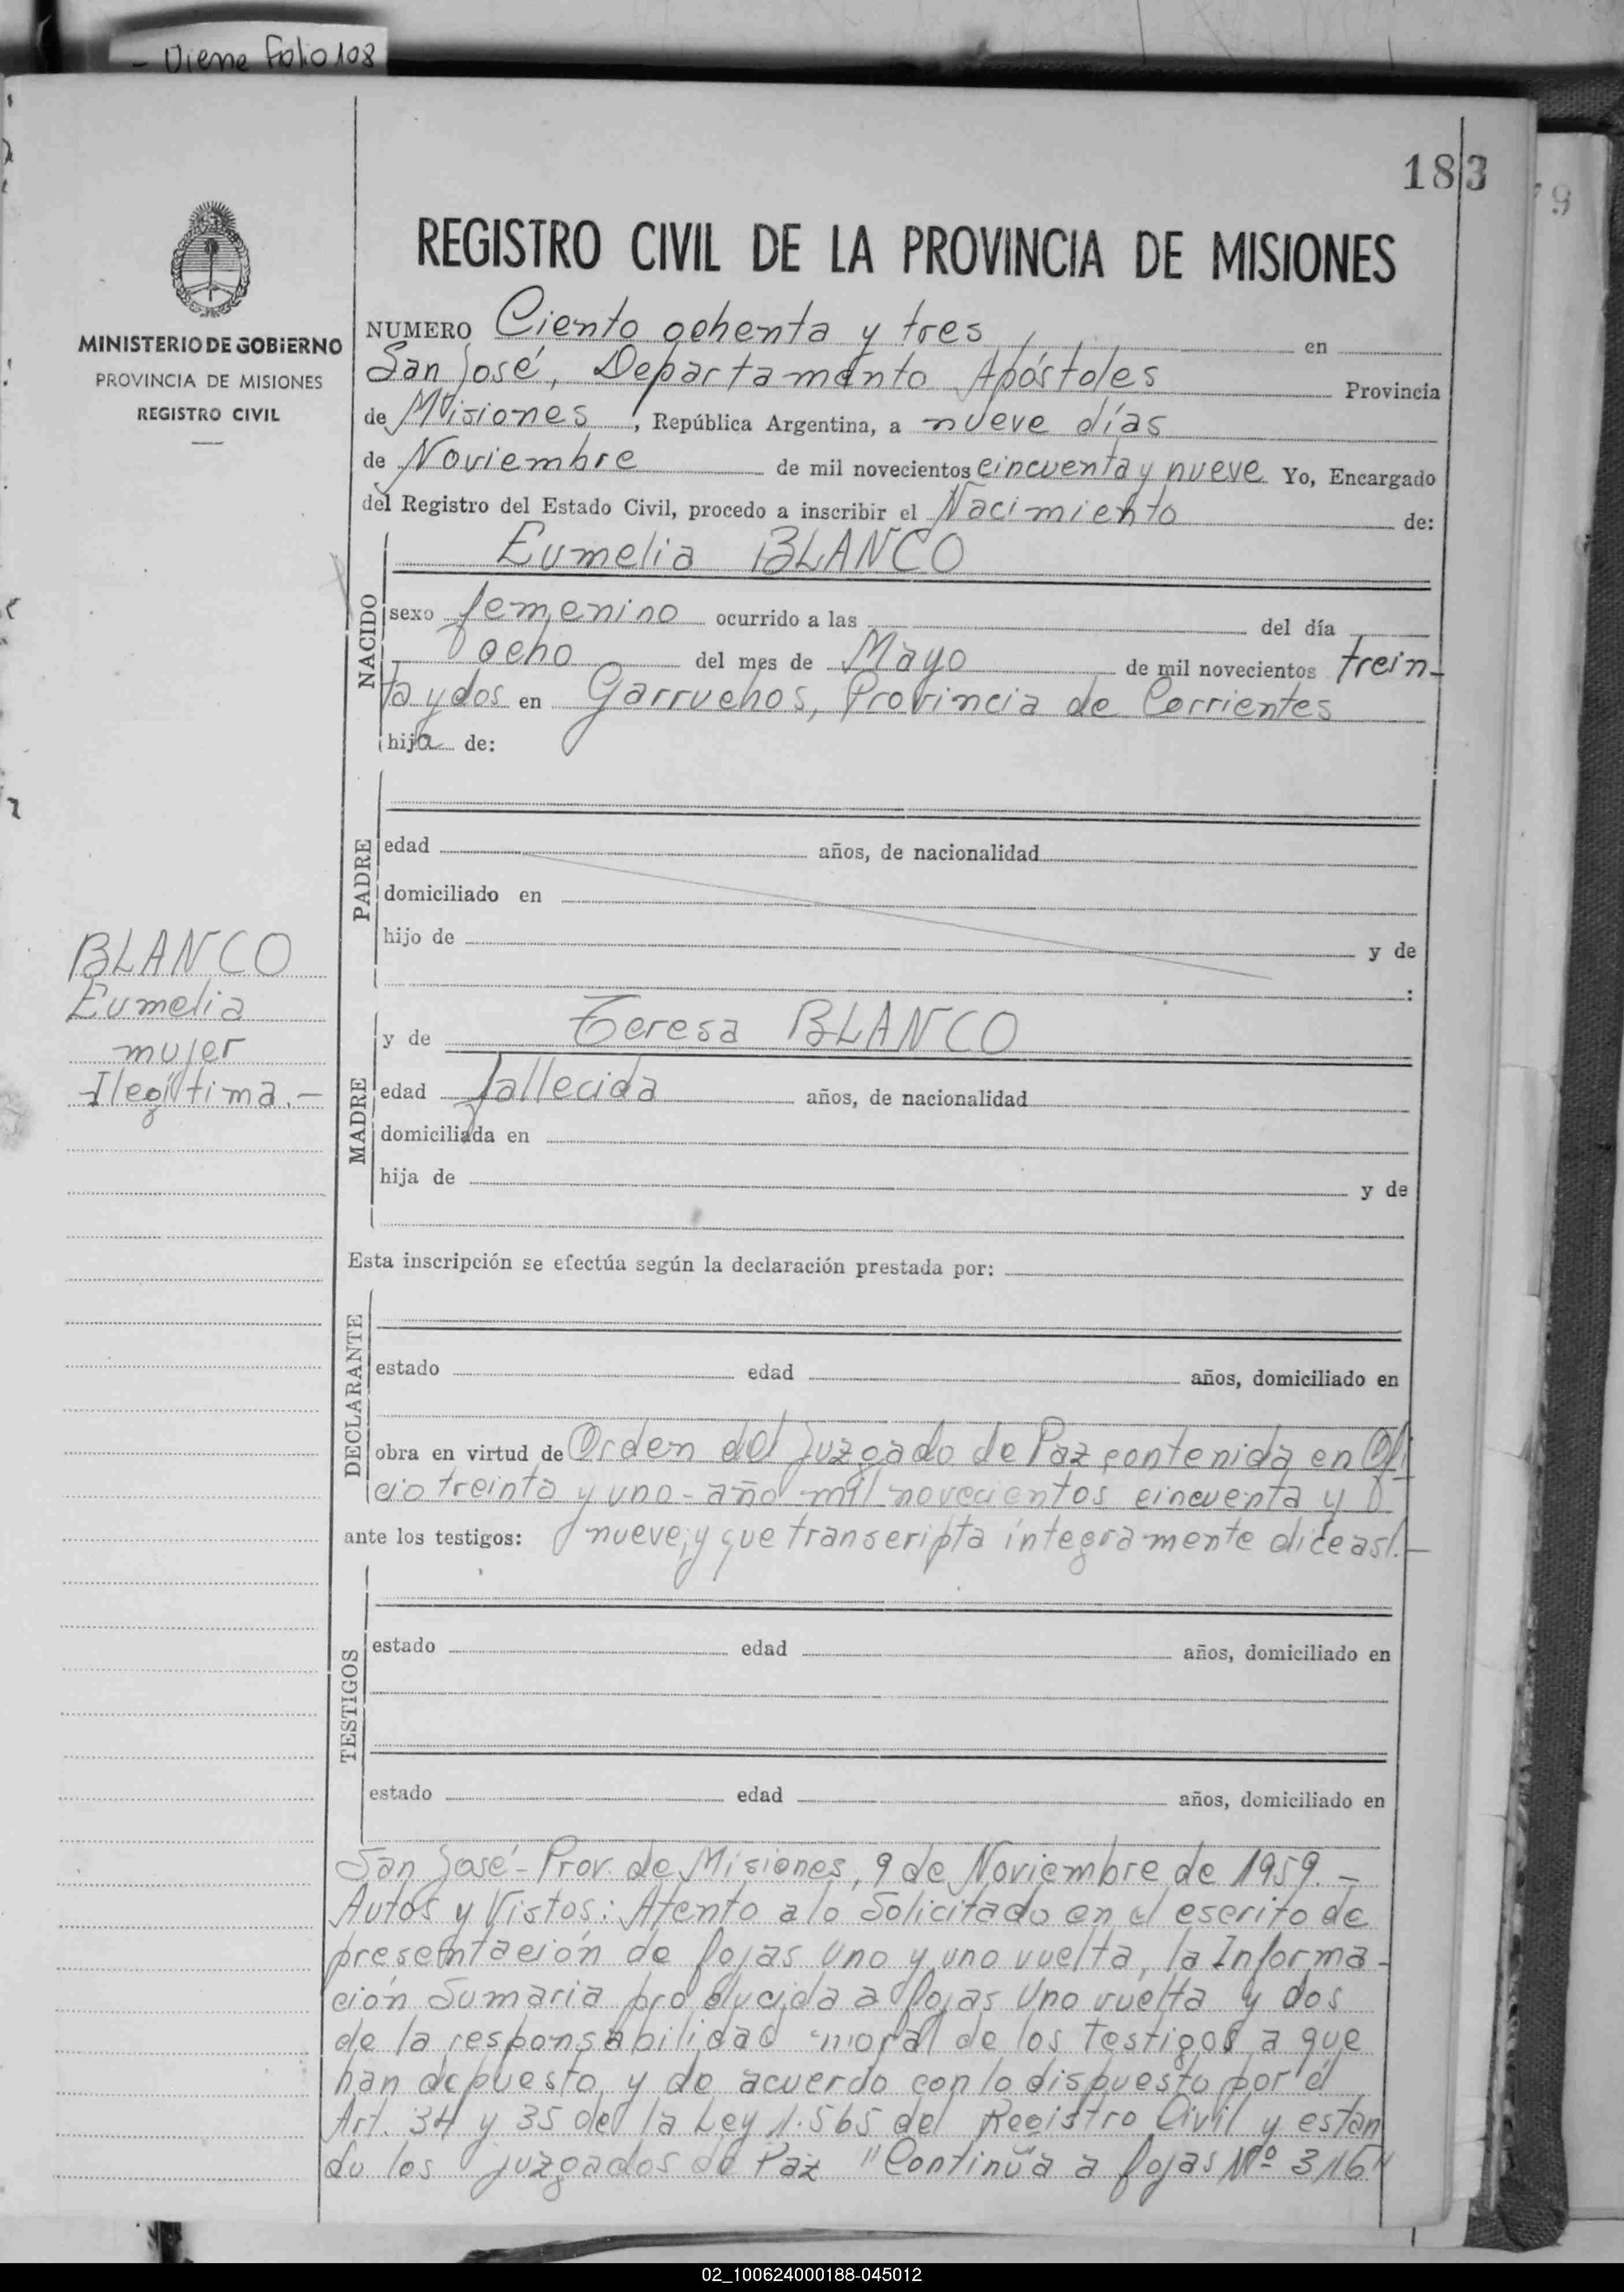 - Viene Folio 108
183
9
REGISTRO CIVIL DE LA PROVINCIA DE MISIONES
MINISTERIO DE GOBIERNO
PROVINCIA DE MISIONES
REGISTRO CIVIL
NUMERO Ciento ochenta y tres en
San José, Departamento Apóstoles Provincia
de Misiones, República Argentina, a nueve días
de Noviembre de mil novecientos cincuenta y nueve Yo, Encargado
del Registro del Estado Civil, procedo a inscribir el Nacimiento de:
NACIDO
Eumelia BLANCO
sexo femenino ocurrido a las del día
ocho del mes de Mayo de mil novecientos trein-
ta y dos en Garruchos, Provincia de Corrientes
hija de:
PADRE
edad años, de nacionalidad
domiciliado en
hijo de y de
:
BLANCO
Eumelia
mujer
Ilegítima.-
MADRE
y de Teresa BLANCO
edad fallecida años, de nacionalidad
domiciliada en
hija de y de
Esta inscripción se efectúa según la declaración prestada por:
DECLARANTE
estado edad años, domiciliado en
obra en virtud de Orden del Juzgado de Paz contenida en Ofi
cio treinta y uno - año mil novecientos cincuenta y
ante los testigos: nueve, y que transcripta íntegramente dice así.-
TESTIGOS
estado edad años, domiciliado en
estado edad años, domiciliado en
San José - Prov. de Misiones, 9 de Noviembre de 1959.-
Autos y Vistos: Atento a lo Solicitado en el escrito de
presentación de fojas Uno y uno vuelta, la Informa-
ción Sumaria producida a fojas Uno vuelta y dos
de la responsabilidad moral de los Testigos a que
han depuesto, y de acuerdo con lo dispuesto por el
Art. 34 y 35 de la Ley 1.565 del Registro Civil y estan
do los juzgados de Paz "Continúa a fojas Nº 316"
02_100624000188-045012